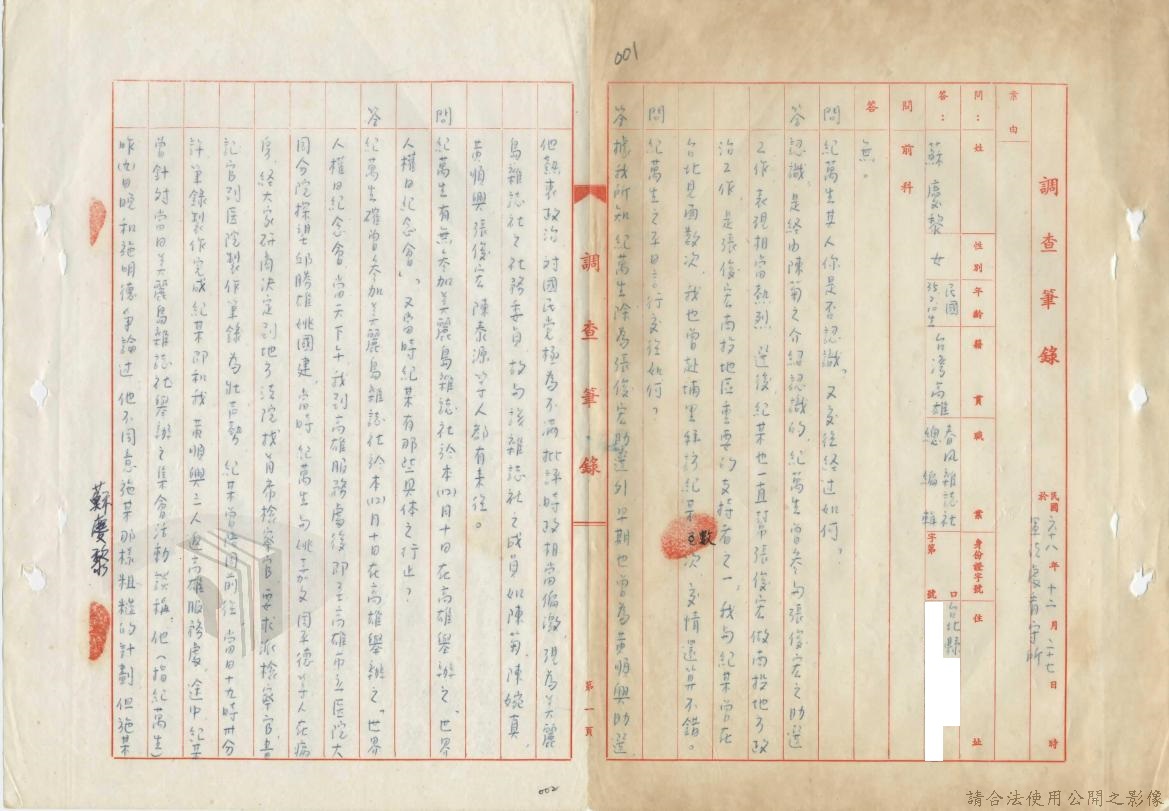 001
調查筆錄
民國六十八年十二月二十七日 時
於軍法處看守所
案由
問：姓 性別 年齡 籍貫 職業 身份證字號 住址
答：蘇慶黎 女 民國35 台灣高雄 春風雜誌社總編輯 字第 號 口 台北縣
問 前科
答 無。
問 紀萬生其人你是否認識。又交往經过如何。
答 認識，是经由陳菊之介紹認識的，紀萬生曾参与張俊宏之助選
工作，表現相当熱烈，選後，紀某也一直幫張俊宏做南投地方政
治工作，是張俊宏南投地區重要的支持者之一，我与紀某曾在
台北見面數次，我也曾赴埔里拜訪紀某數次，交情還算不錯。
問 紀萬生之平日言行交往如何？
答 據我所知紀萬生除為張俊宏助選外，早期也曾為黃順興助選，
調查筆錄
第一頁
他熱衷政治，对國民党極為不滿，批評時政相当偏激，現為美麗
島雜誌社之社務委員，故与該雜誌社之成員如陳菊、陳婉真、
黃順興、張俊宏、陳泰源等人都有来往。
問 紀萬生有無参加美麗島雜誌社於本(12)月十日在高雄舉辦之「世界
人權日紀念會」，又當時紀某有那些具体之行止？
答 紀萬生確曾参加美麗島雜誌社於本(12)月十日在高雄舉辦之「世界
人權日紀念會」當天下午，我到高雄服務處後，即至高雄市立医院大
同分院探望邱勝雄、姚國建，當時，紀萬生与姚嘉文、周平德等人在病
房，经大家研商决定到地方法院找首席檢察官，要求派檢察官、書
記官到医院製作筆錄，為壯声勢，紀某曾共同前往，當日十九時卅分
許，筆錄製作完成，紀某即和我、黃順興三人返高雄服務處，途中，紀某
曾針对當日美麗島雜誌社舉辦之集會活動談稱：他（指紀萬生）
昨(九)日晚和施明德爭論过，他不同意施某那樣粗糙的計劃，但施某
蘇慶黎
002
請合法使用公開之影像